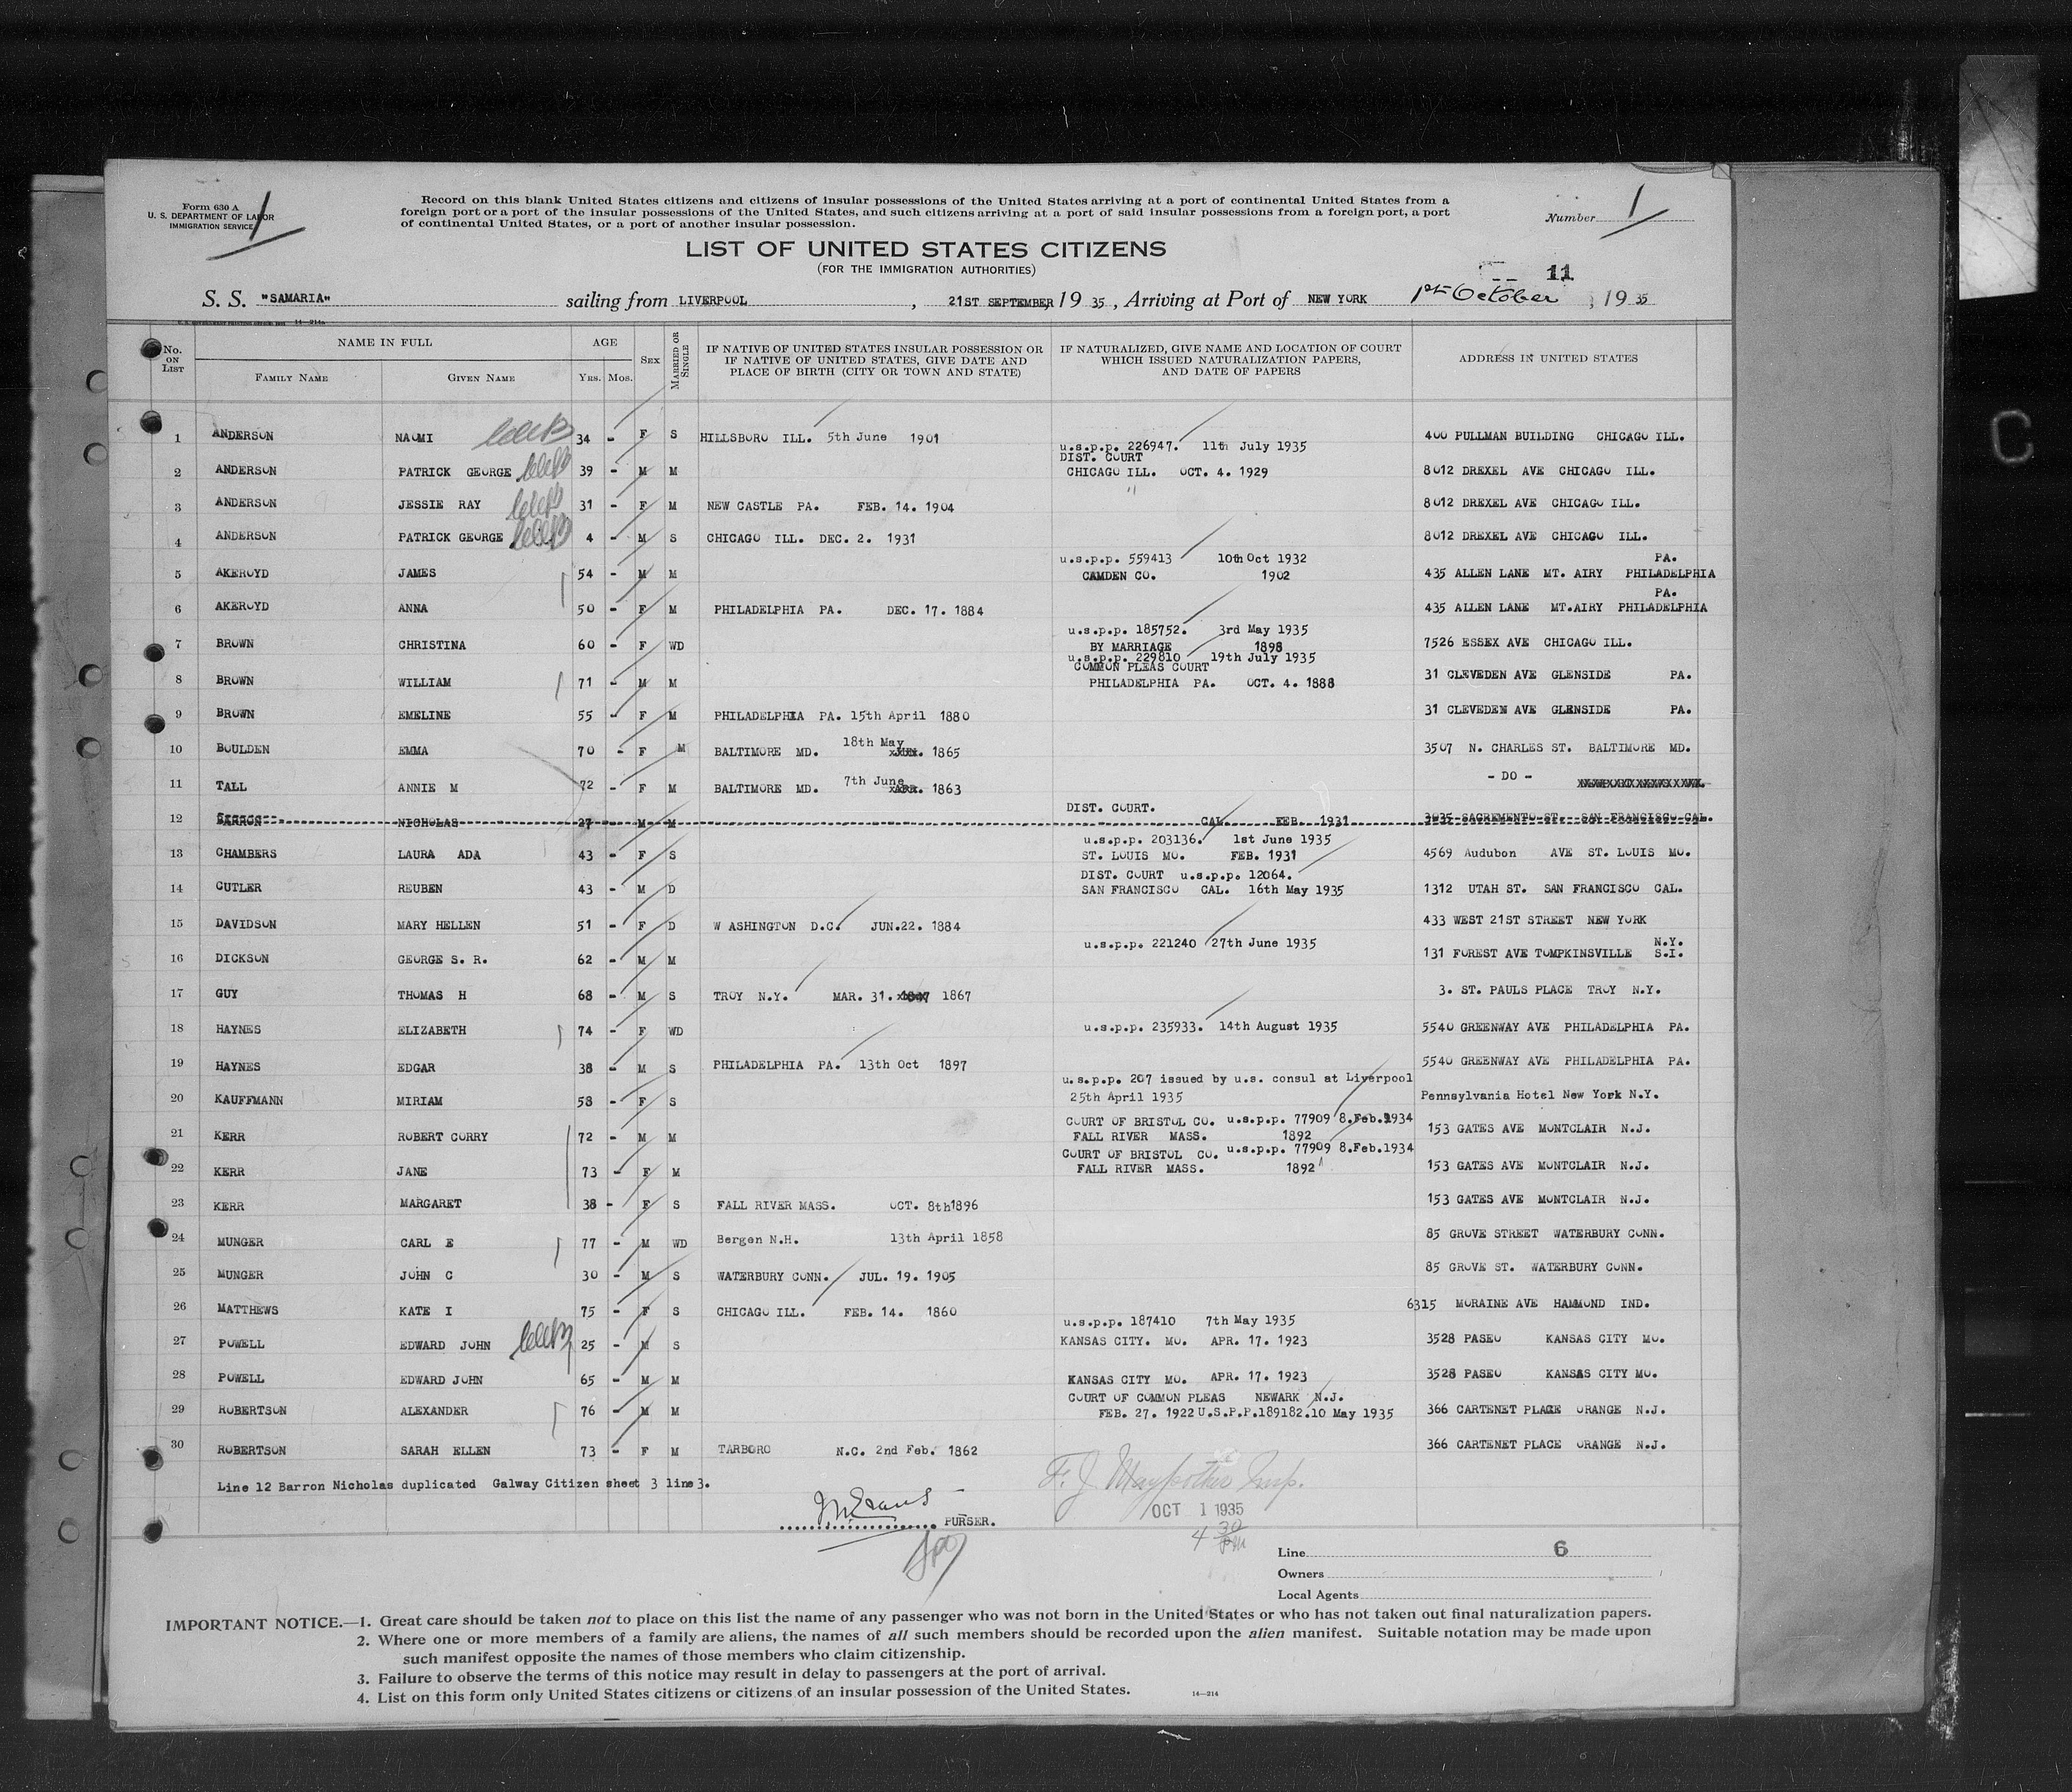 Form 630 A
U. S. DEPARTMENT OF LABOR
IMMIGRATION SERVICE
1
Record on this blank United States citizens and citizens of insular possessions of the United States arriving at a port of continental United States from a
foreign port or a port of the insular possessions of the United States, and such citizens arriving at a port of said insular possessions from a foreign port, a port
of continental United States, or a port of another insular possession.
Number 1
LIST OF UNITED STATES CITIZENS
(FOR THE IMMIGRATION AUTHORITIES)
11
S. S. "SAMARIA" sailing from LIVERPOOL, 21ST SEPTEMBER, 19 35, Arriving at Port of NEW YORK 1st October, 19 35
No. ON LIST NAME IN FULL FAMILY NAME GIVEN NAME AGE YRS. MOS. SEX MARRIED OR SINGLE IF NATIVE OF UNITED STATES INSULAR POSSESSION OR IF NATIVE OF UNITED STATES, GIVE DATE AND PLACE OF BIRTH (CITY OR TOWN AND STATE) IF NATURALIZED, GIVE NAME AND LOCATION OF COURT WHICH ISSUED NATURALIZATION PAPERS, AND DATE OF PAPERS ADDRESS IN UNITED STATES
1 ANDERSON NAOMI 34 - F S HILLSBORO ILL. 5th June 1901 400 PULLMAN BUILDING CHICAGO ILL.
u.s.p.p. 226947. 11th July 1935
DIST. COURT
2 ANDERSON PATRICK GEORGE 39 - M M CHICAGO ILL. OCT. 4. 1929 8012 DREXEL AVE CHICAGO ILL.
"
3 ANDERSON JESSIE RAY 31 - F M NEW CASTLE PA. FEB. 14. 1904 8012 DREXEL AVE CHICAGO ILL.
4 ANDERSON PATRICK GEORGE 4 - M S CHICAGO ILL. DEC. 2. 1931 8012 DREXEL AVE CHICAGO ILL.
u.s.p.p. 559413 10th Oct 1932 PA.
5 AKEROYD JAMES 54 - M M CAMDEN CO. 1902 435 ALLEN LANE MT. AIRY PHILADELPHIA
PA.
6 AKEROYD ANNA 50 - F M PHILADELPHIA PA. DEC. 17. 1884 435 ALLEN LANE MT.AIRY PHILADELPHIA
u.s.p.p. 185752. 3rd May 1935
7 BROWN CHRISTINA 60 - F WD BY MARRIAGE 1898 7526 ESSEX AVE CHICAGO ILL.
u.s.p.p. 229810 19th July 1935
COMMON PLEAS COURT
8 BROWN WILLIAM 71 - M M PHILADELPHIA PA. OCT. 4. 1888 31 CLEVEDEN AVE GLENSIDE PA.
9 BROWN EMELINE 55 - F M PHILADELPHIA PA. 15th April 1880 31 CLEVEDEN AVE GLENSIDE PA.
18th May
10 BOULDEN EMMA 70 - F M BALTIMORE MD. 1865 3507 N. CHARLES ST. BALTIMORE MD.
7th June
11 TALL ANNIE M 72 - F M BALTIMORE MD. 1863 - DO -
DIST. COURT.
12 BARRON NICHOLAS 27 - M M CAL. FEB. 1931 3035 SACREMENTO ST. SAN FRANCISCO CAL.
u.s.p.p. 203136. 1st June 1935
13 CHAMBERS LAURA ADA 43 - F S ST. LOUIS MO. FEB. 1931 4569 Audubon AVE ST. LOUIS MO.
DIST. COURT u.s.p.p. 12064.
14 CUTLER REUBEN 43 - M D SAN FRANCISCO CAL. 16th May 1935 1312 UTAH ST. SAN FRANCISCO CAL.
15 DAVIDSON MARY HELLEN 51 - F D W ASHINGTON D.C. JUN.22. 1884 433 WEST 21ST STREET NEW YORK
u.s.p.p. 221240 27th June 1935 N.Y.
16 DICKSON GEORGE S. R. 62 - M M 131 FOREST AVE TOMPKINSVILLE S.I.
17 GUY THOMAS H 68 - M S TROY N.Y. MAR. 31. 1867 3. ST. PAULS PLACE TROY N.Y.
18 HAYNES ELIZABETH 74 - F WD u.s.p.p. 235933. 14th August 1935 5540 GREENWAY AVE PHILADELPHIA PA.
19 HAYNES EDGAR 38 - M S PHILADELPHIA PA. 13th Oct 1897 5540 GREENWAY AVE PHILADELPHIA PA.
u.s.p.p. 207 issued by u.s. consul at Liverpool
20 KAUFFMANN MIRIAM 58 - F S 25th April 1935 Pennsylvania Hotel New York N.Y.
COURT OF BRISTOL CO. u.s.p.p. 77909 8.Feb.1934
21 KERR ROBERT CORRY 72 - M M FALL RIVER MASS. 1892 153 GATES AVE MONTCLAIR N.J.
COURT OF BRISTOL CO. u.s.p.p. 77909 8.Feb.1934
22 KERR JANE 73 - F M FALL RIVER MASS. 1892 153 GATES AVE MONTCLAIR N.J.
23 KERR MARGARET 38 - F S FALL RIVER MASS. OCT. 8th1896 153 GATES AVE MONTCLAIR N.J.
24 MUNGER CARL E 77 - M WD Bergen N.H. 13th April 1858 85 GROVE STREET WATERBURY CONN.
25 MUNGER JOHN C 30 - M S WATERBURY CONN. JUL. 19. 1905 85 GROVE ST. WATERBURY CONN.
26 MATTHEWS KATE I 75 - F S CHICAGO ILL. FEB. 14. 1860 6315 MORAINE AVE HAMMOND IND.
u.s.p.p. 187410 7th May 1935
27 POWELL EDWARD JOHN 25 - M S KANSAS CITY. MO. APR. 17. 1923 3528 PASEO KANSAS CITY MO.
28 POWELL EDWARD JOHN 65 - M M KANSAS CITY MO. APR. 17. 1923 3528 PASEO KANSAS CITY MO.
COURT OF COMMON PLEAS NEWARK N.J.
29 ROBERTSON ALEXANDER 76 - M M FEB. 27. 1922 U.S.P.P.189182.10 May 1935 366 CARTENET PLACE ORANGE N.J.
30 ROBERTSON SARAH ELLEN 73 - F M TARBORO N.C. 2nd Feb. 1862 366 CARTENET PLACE ORANGE N.J.
Line 12 Barron Nicholas duplicated Galway Citizen sheet 3 line 3.
PURSER.
OCT 1 1935
4 30 PM
Line 6
Owners
Local Agents
IMPORTANT NOTICE.—1. Great care should be taken not to place on this list the name of any passenger who was not born in the United States or who has not taken out final naturalization papers.
2. Where one or more members of a family are aliens, the names of all such members should be recorded upon the alien manifest. Suitable notation may be made upon
such manifest opposite the names of those members who claim citizenship.
3. Failure to observe the terms of this notice may result in delay to passengers at the port of arrival.
4. List on this form only United States citizens or citizens of an insular possession of the United States.
14—214